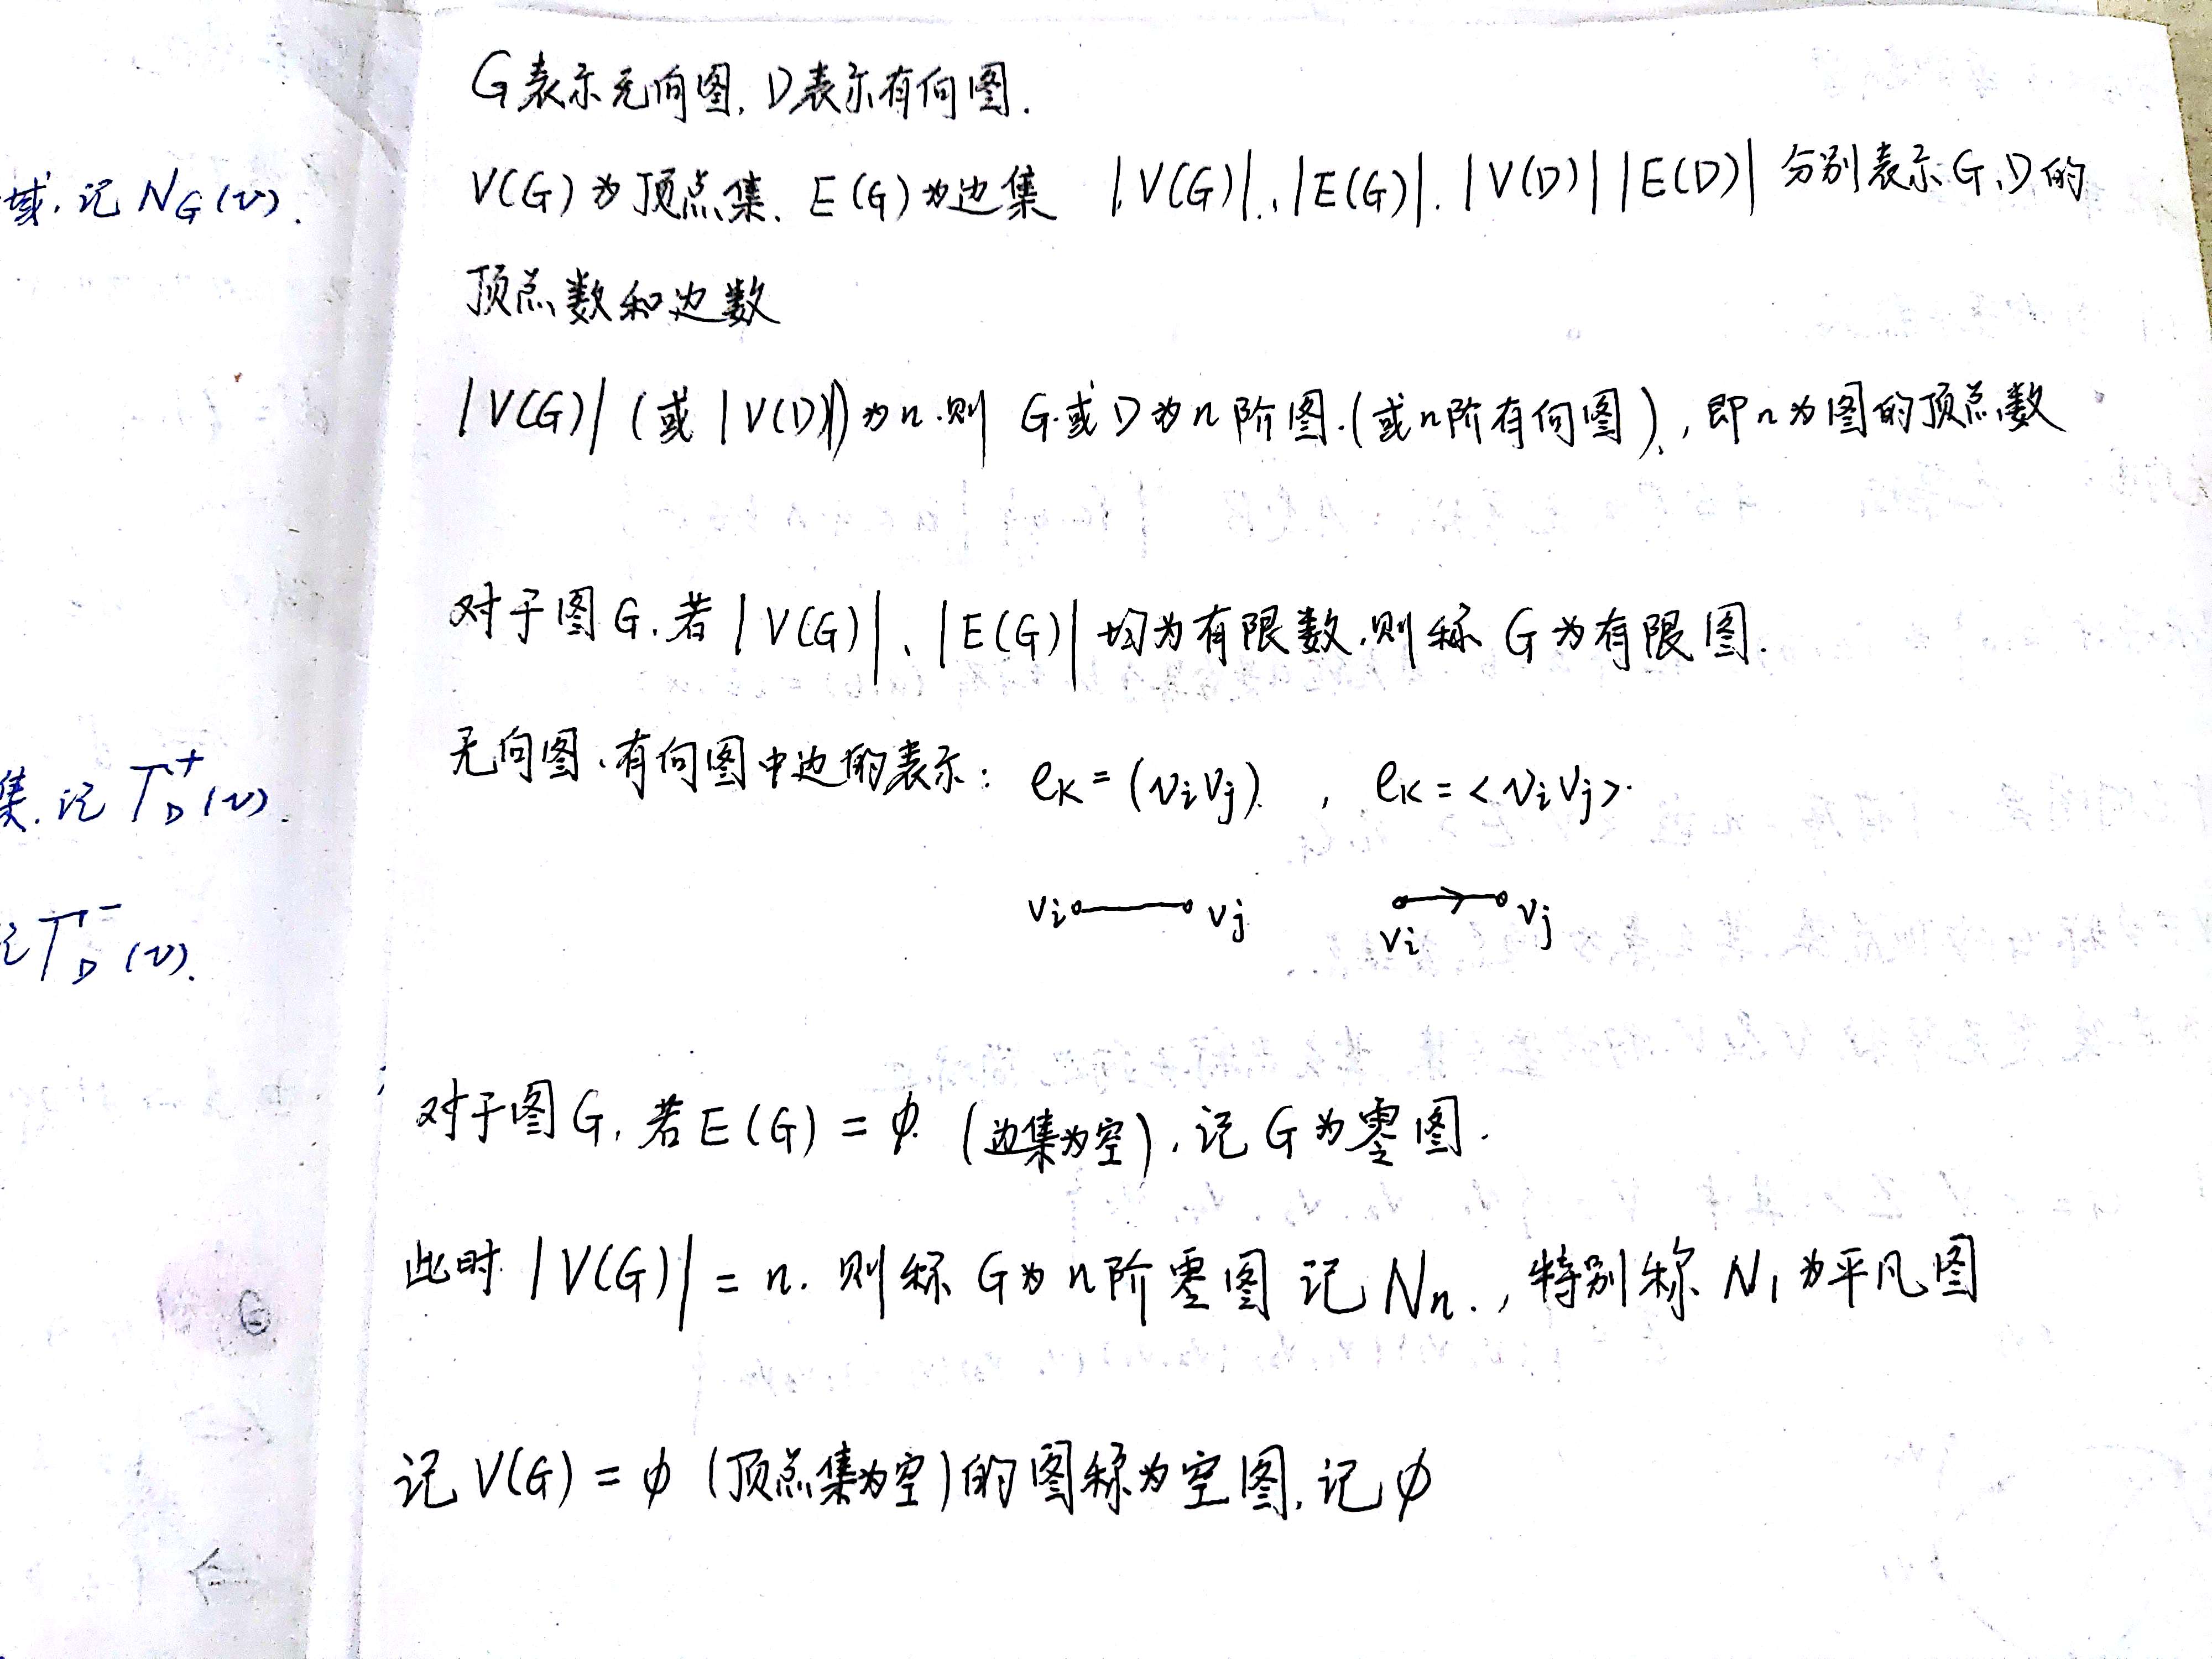 G表示无向图, D表示有向图.
V(G)为顶点集. E(G)为边集 |V(G)|、|E(G)|. |V(D)| |E(D)| 分别表示G、D的
顶点数和边数
|V(G)| (或 |V(D)|)为n.则 G或D为n阶图.(或n阶有向图), 即n为图的顶点数
对于图G,若|V(G)|、|E(G)|均为有限数,则称G为有限图.
无向图、有向图中边的表示: eₖ=(vᵢvⱼ). , eₖ=<vᵢvⱼ>.
vᵢ vⱼ vᵢ vⱼ
对于图G,若E(G)=ϕ. (边集为空),记G为零图.
此时|V(G)|=n. 则称G为n阶零图 记Nₙ., 特别称N₁为平凡图
记V(G)=ϕ (顶点集为空)的图称为空图,记ϕ
域.记N_G(v).
集.记Γ_D⁺(v).
记Γ_D⁻(v).